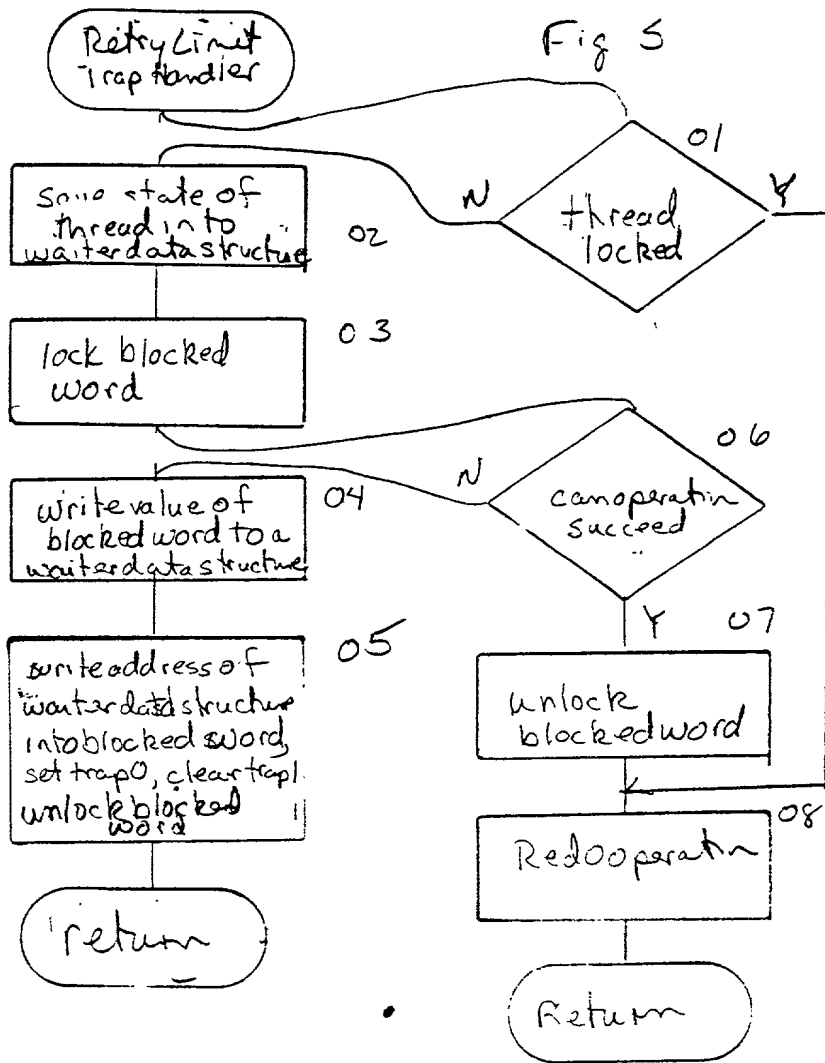 Retry Limit
Trap Handler
Fig 5
01
thread
locked
N
Y
state of
thread into
waiter data structure
02
lock blocked
word
03
06
can operatin
succeed
N
Y
write value of
blocked word to a
waiter data structure
04
write address of
waiter data structure
into blocked word,
set trap0, clear trap1
unlock blocked
word
05
return
07
unlock
blocked word
08
Redo operatin
Return